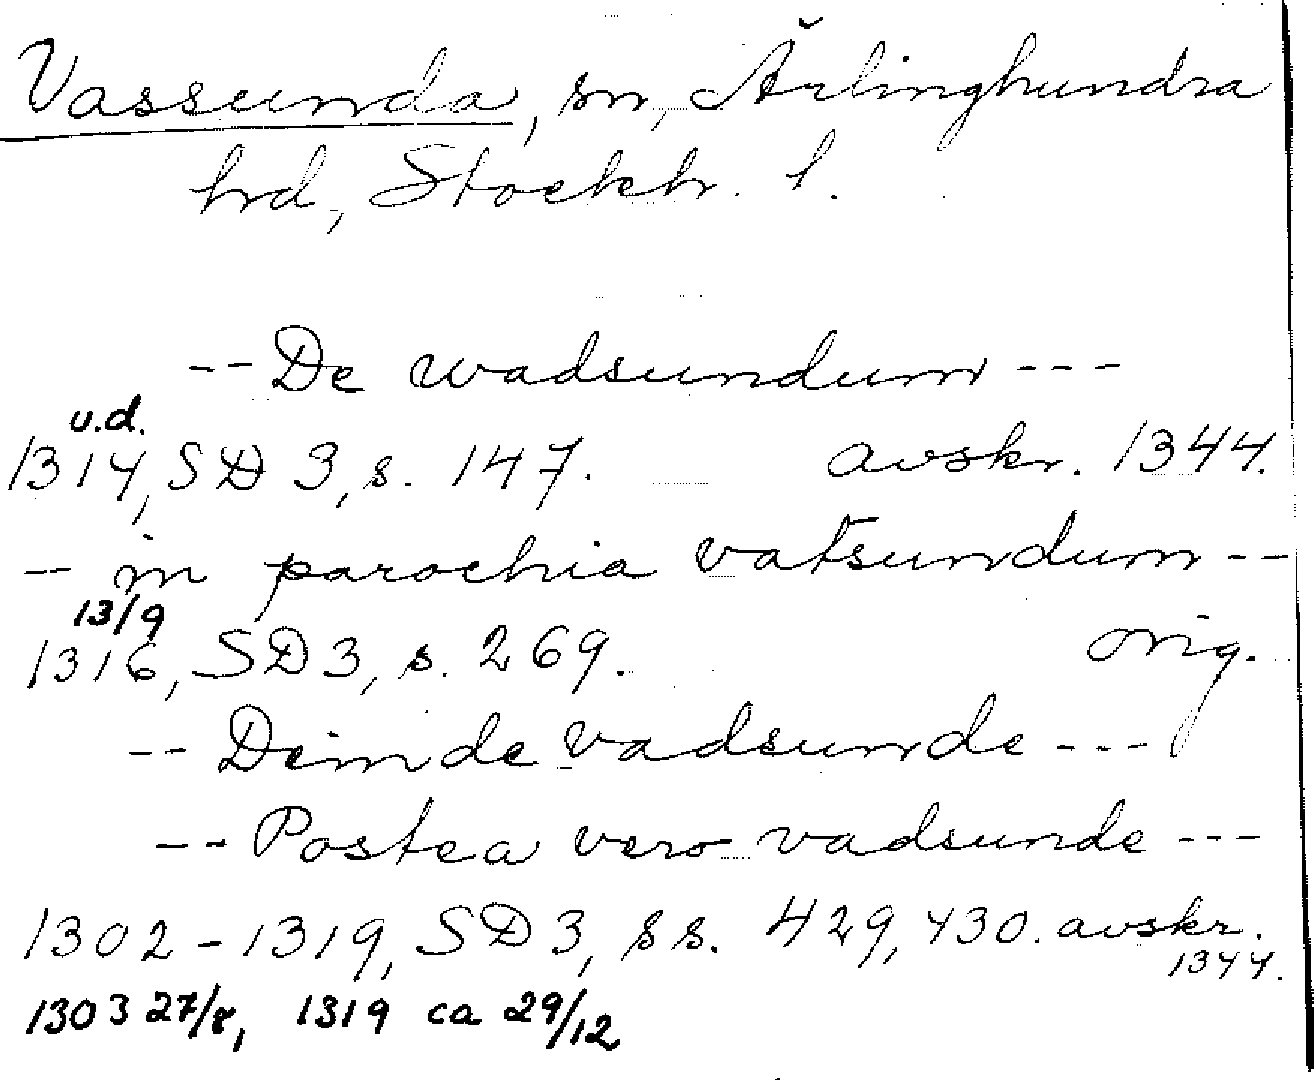 Vassunda, sn, Ärlinghundra
hrd, Stockh. l.
-- De wadsundum ---
u.d.
1314, SD 3, s. 147. avskr. 1344.
- in parochia vatsundum --
13/9
1316, SD 3, s. 269. orig.
-- Deinde vadsunde ---
-- Postea vero vadsunde ---
1302-1319, SD 3, ss. 429, 430. avskr.
1344.
1303 27/8, 1319 ca 29/12